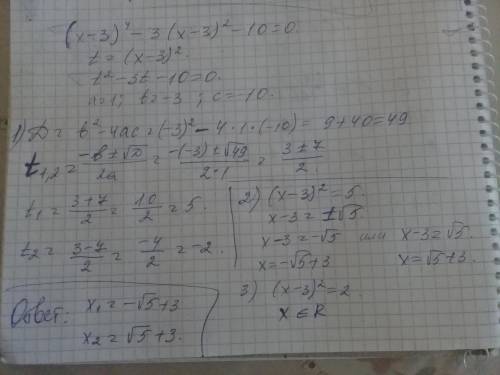 (x-3)⁴-3(x-3)²-10=0.
t=(x-3)².
t²-3t-10=0.
a=1; b=-3; c=-10.
1) D= b²-4ac=(-3)²-4·1·(-10)= 9+40=49
t₁,₂= (-b±√D)/2a = (-(-3)±√49)/(2·1) = (3±7)/2.
t₁= (3+7)/2 = 10/2 = 5.
t₂= (3-7)/2 = -4/2 = -2.
2) (x-3)²=5.
x-3=±√5
x-3=-√5 или x-3=√5.
x=-√5+3 x=√5+3.
3) (x-3)²=2.
x∈R
Ответ: x₁=-√5+3
x₂=√5+3.